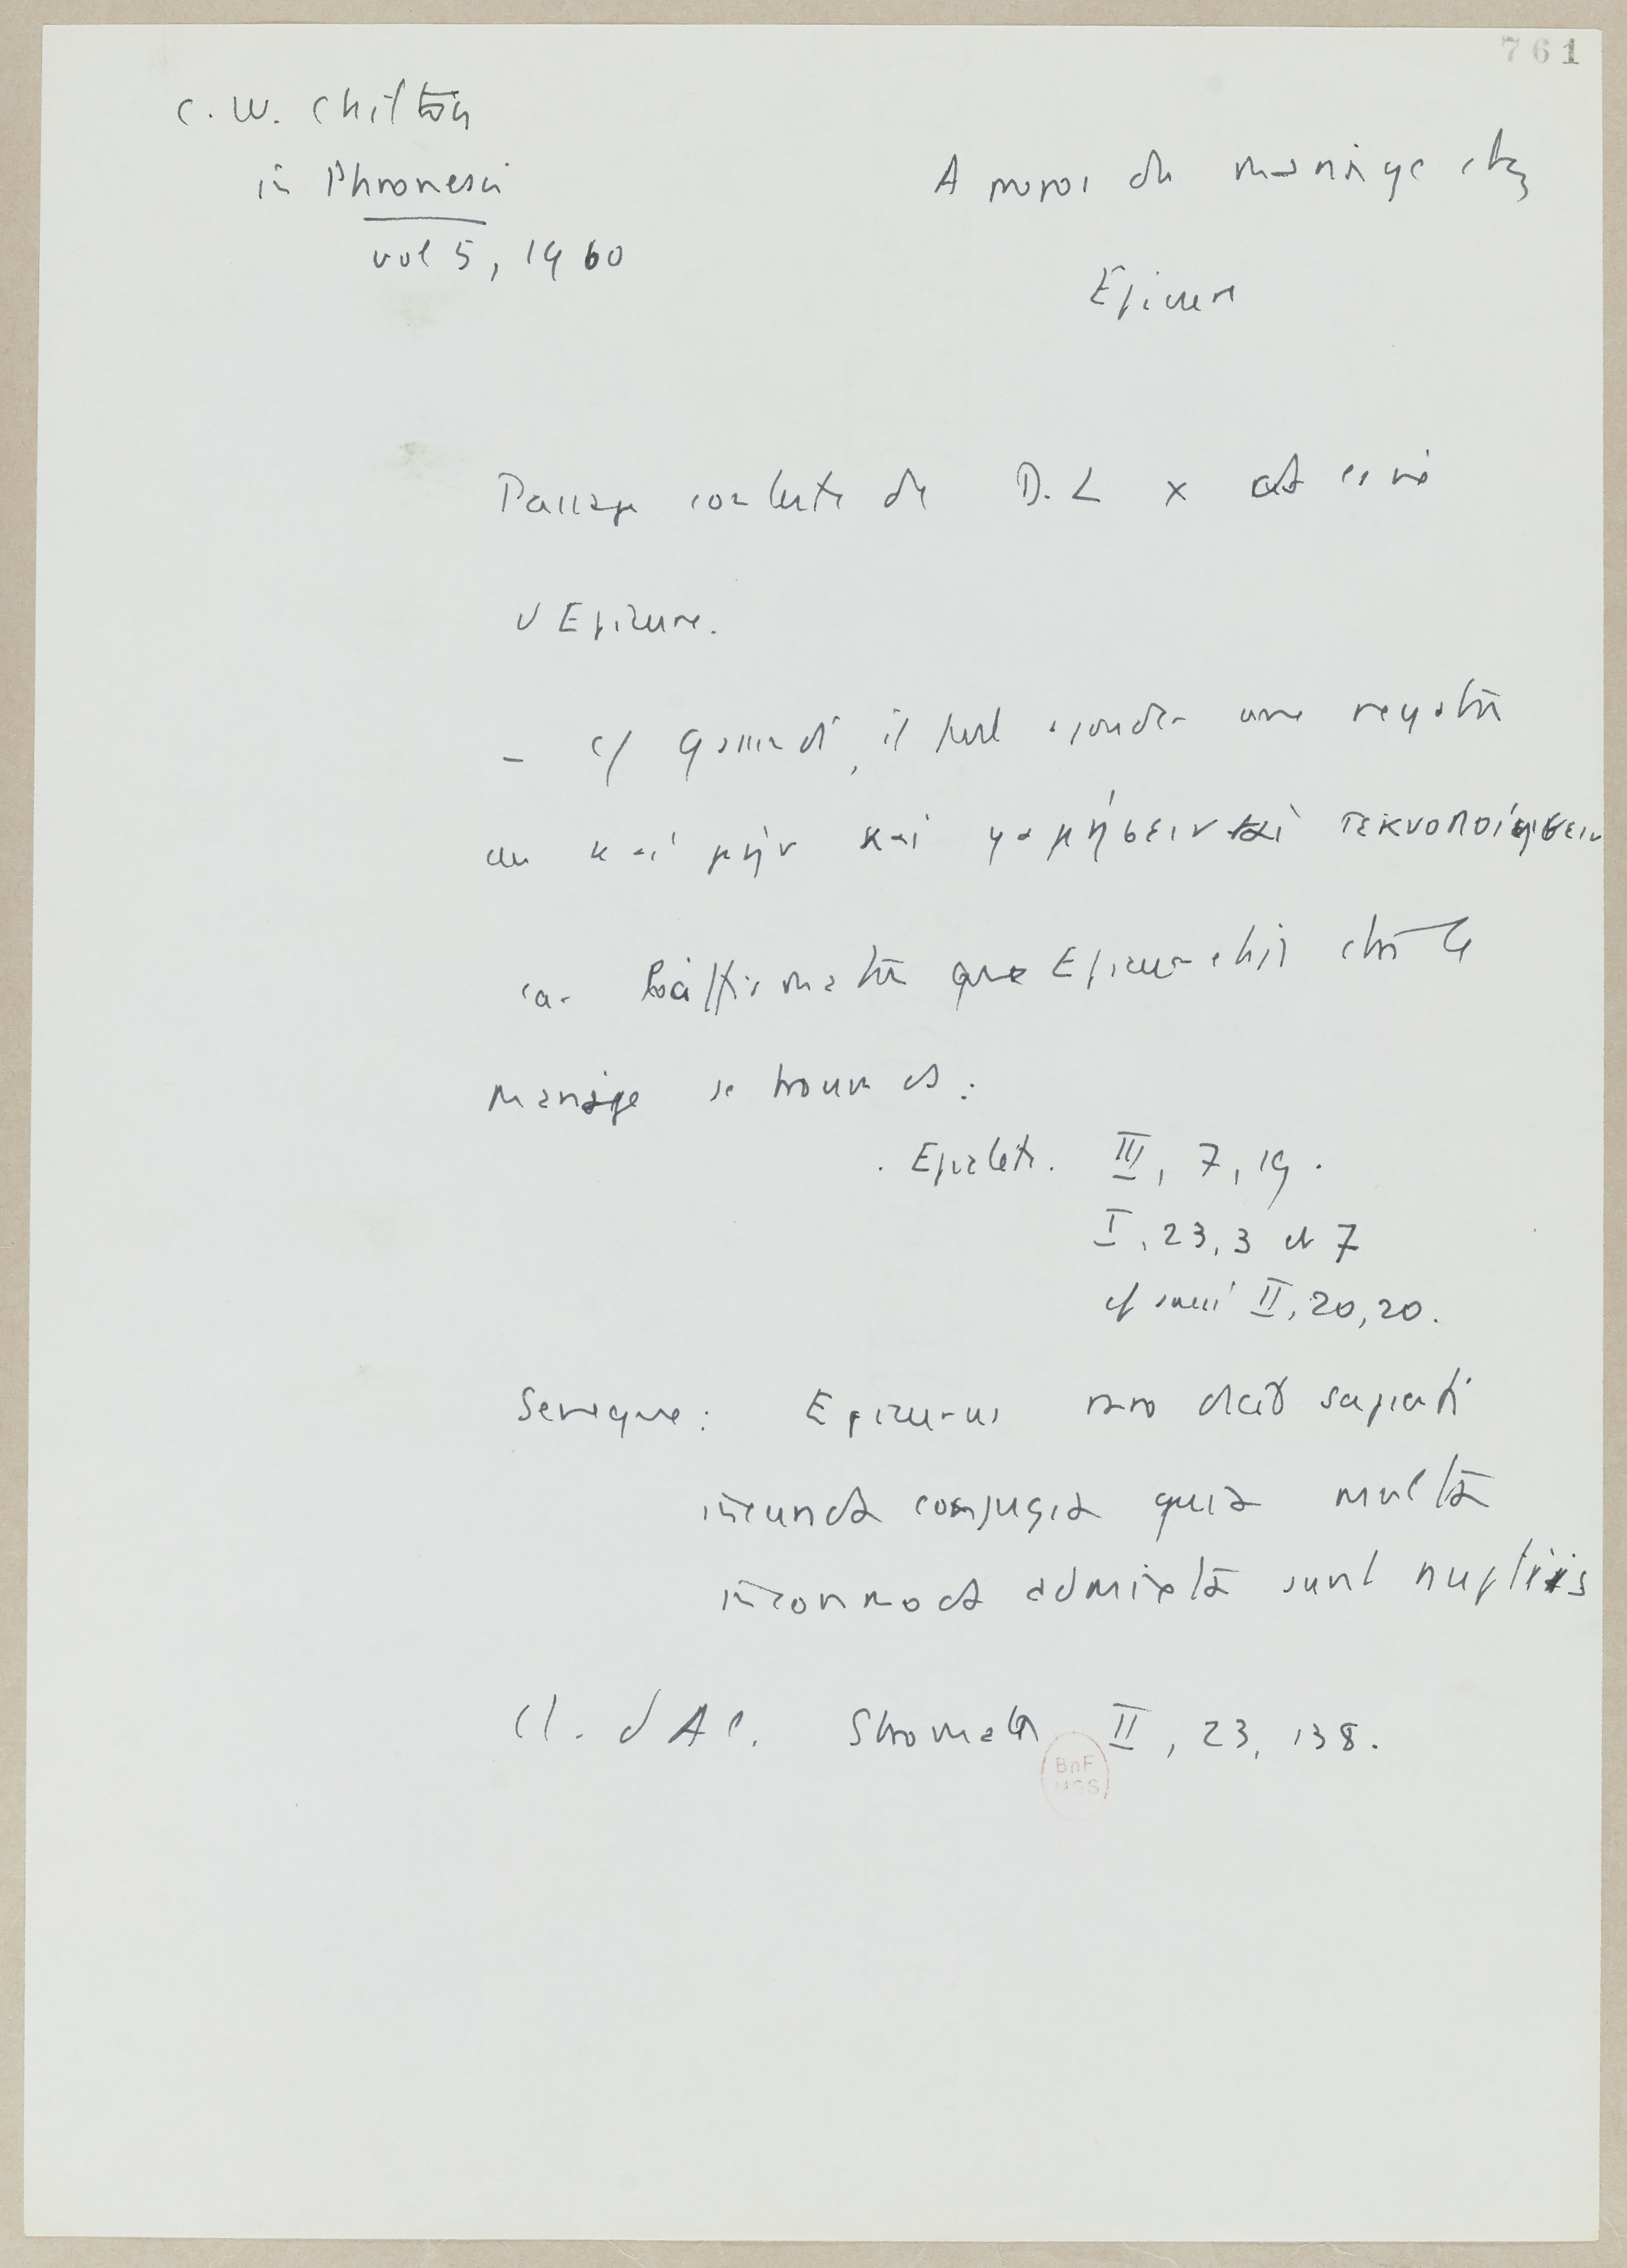 761
C. W. Chilton
in Phronesis
vol 5, 1960
A propos du mariage chez
Epicure
Passage contesté de D. L X
d'Epicure.
- cf Gassendi, il faut ajouter une négation
au καὶ μὴν καὶ γαμήσειν καὶ τεκνοποιήσειν
car l'affirmation que Epicure était contre le
mariage se trouve ds :
. Epictète. III, 7, 19.
I, 23, 3 et 7
cf aussi II, 20, 20.
Sénèque : Epicurus raro dicit sapienti
ineunda conjugia quia multa
incommoda admixta sunt nuptiis
Cl. d'Al. Stromates II, 23, 138.
BnF
MSS